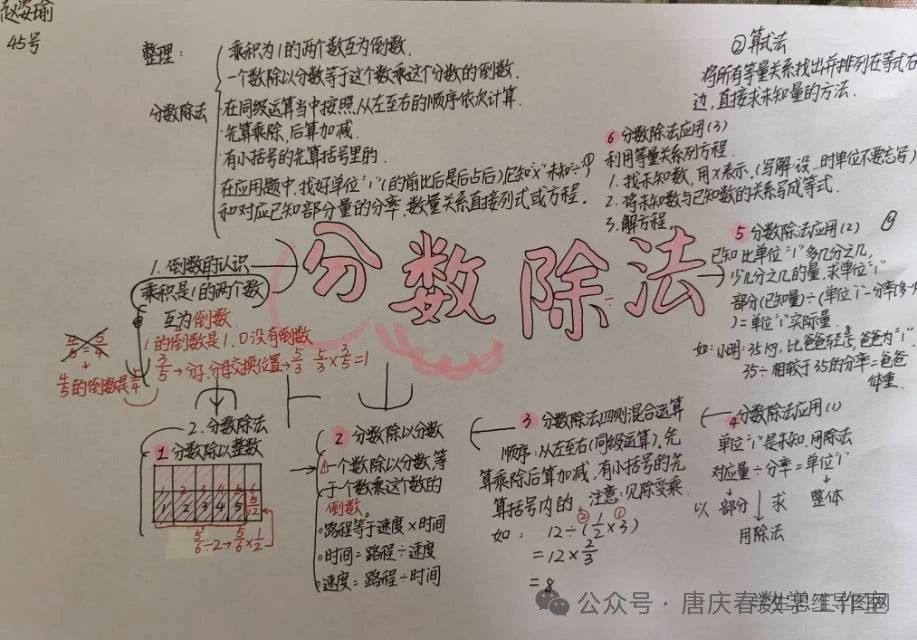 赵姿瑜
45号
整理：
分数除法
乘积为1的两个数互为倒数.
一个数除以分数等于这个数乘这个分数的倒数.
在同级运算当中按照从左至右的顺序依次计算.
先算乘除,后算加减.
有小括号的先算括号里的.
在应用题中,找好单位"1"(的前比后是后占后)已知"×"未知"÷"
和对应已知部分量的分率,数量关系直接列式或方程.
②算式法
将所有等量关系找出并排列在等式右
边,直接求未知量的方法.
6 分数除法应用(3)
利用等量关系列方程
1.找未知数,用x表示.(写解设 时单位不要忘写)
2.将未知数与已知数的关系写成等式.
3.解方程.
分数除法
1.倒数的认识
乘积是1的两个数
互为倒数.
1的倒数是1,0没有倒数
3/5→分子、分母交换位置→5/3 5/3×3/5=1
4/5的倒数是5/4
5 分数除法应用(2)
已知比单位"1"多几分之几,
少几分之几的量,求单位"1"
部分(已知量)÷(单位"1"-分率(多少
)=单位"1"实际量.
如:小明:35kg,比爸爸轻,爸爸为"1".
35÷相较于35的分率=爸爸
体重.
2.分数除法
1 分数除以整数
1 2 3 4 5
5/12
5/6÷2→5/6×1/2
2 分数除以分数
一个数除以分数,等
于个数乘这个数的
倒数。
路程等于速度×时间
时间=路程÷速度
速度=路程÷时间
3 分数除法四则混合运算
顺序:从左至右(同级运算),先
算乘除后算加减,有小括号的先
算括号内的. 注意:见除变乘.
如: 12÷(1/2×3)
② ①
=12×2/3
=8
4 分数除法应用(1)
单位"1"是未知,用除法
对应量÷分率=单位"1"
以 部分 求 整体
用除法
公众号·唐庆春数学工作室